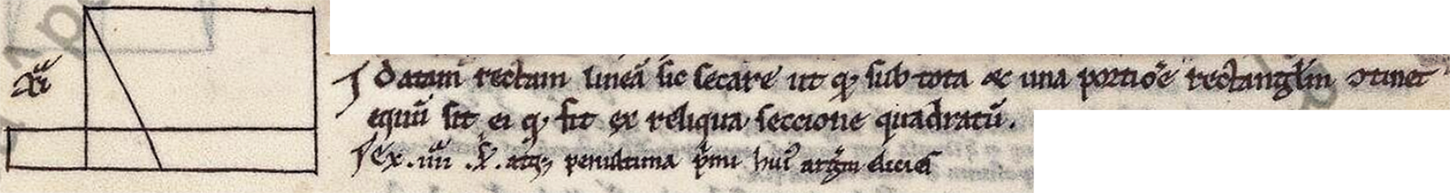 xi
Datam rectam lineā sic secare ut qđ sub tota & una portiōe rectangl̄m ↄtinet
equū sit ei qđ fit ex reliqua seccione quadratū.
Ex .iiii. atqȝ penultima p̄mi huiꝰ argm̄ elicies